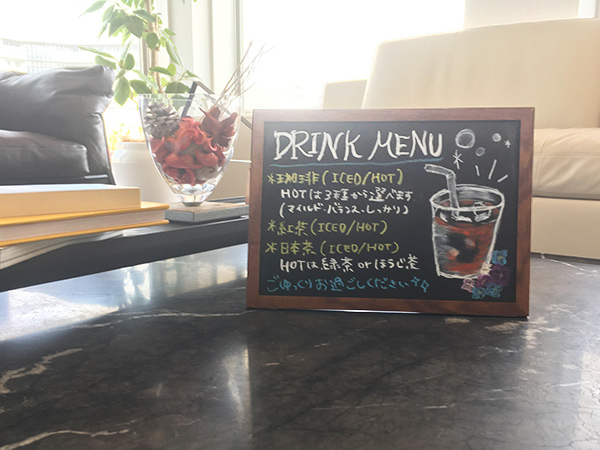 DRINK MENU
*珈琲(ICED/HOT)
HOTは3種から選べます
(マイルド・バランス・しっかり)
*紅茶(ICED/HOT)
*日本茶(ICED/HOT)
HOTは緑茶orほうじ茶
ごゆっくりお過ごしください